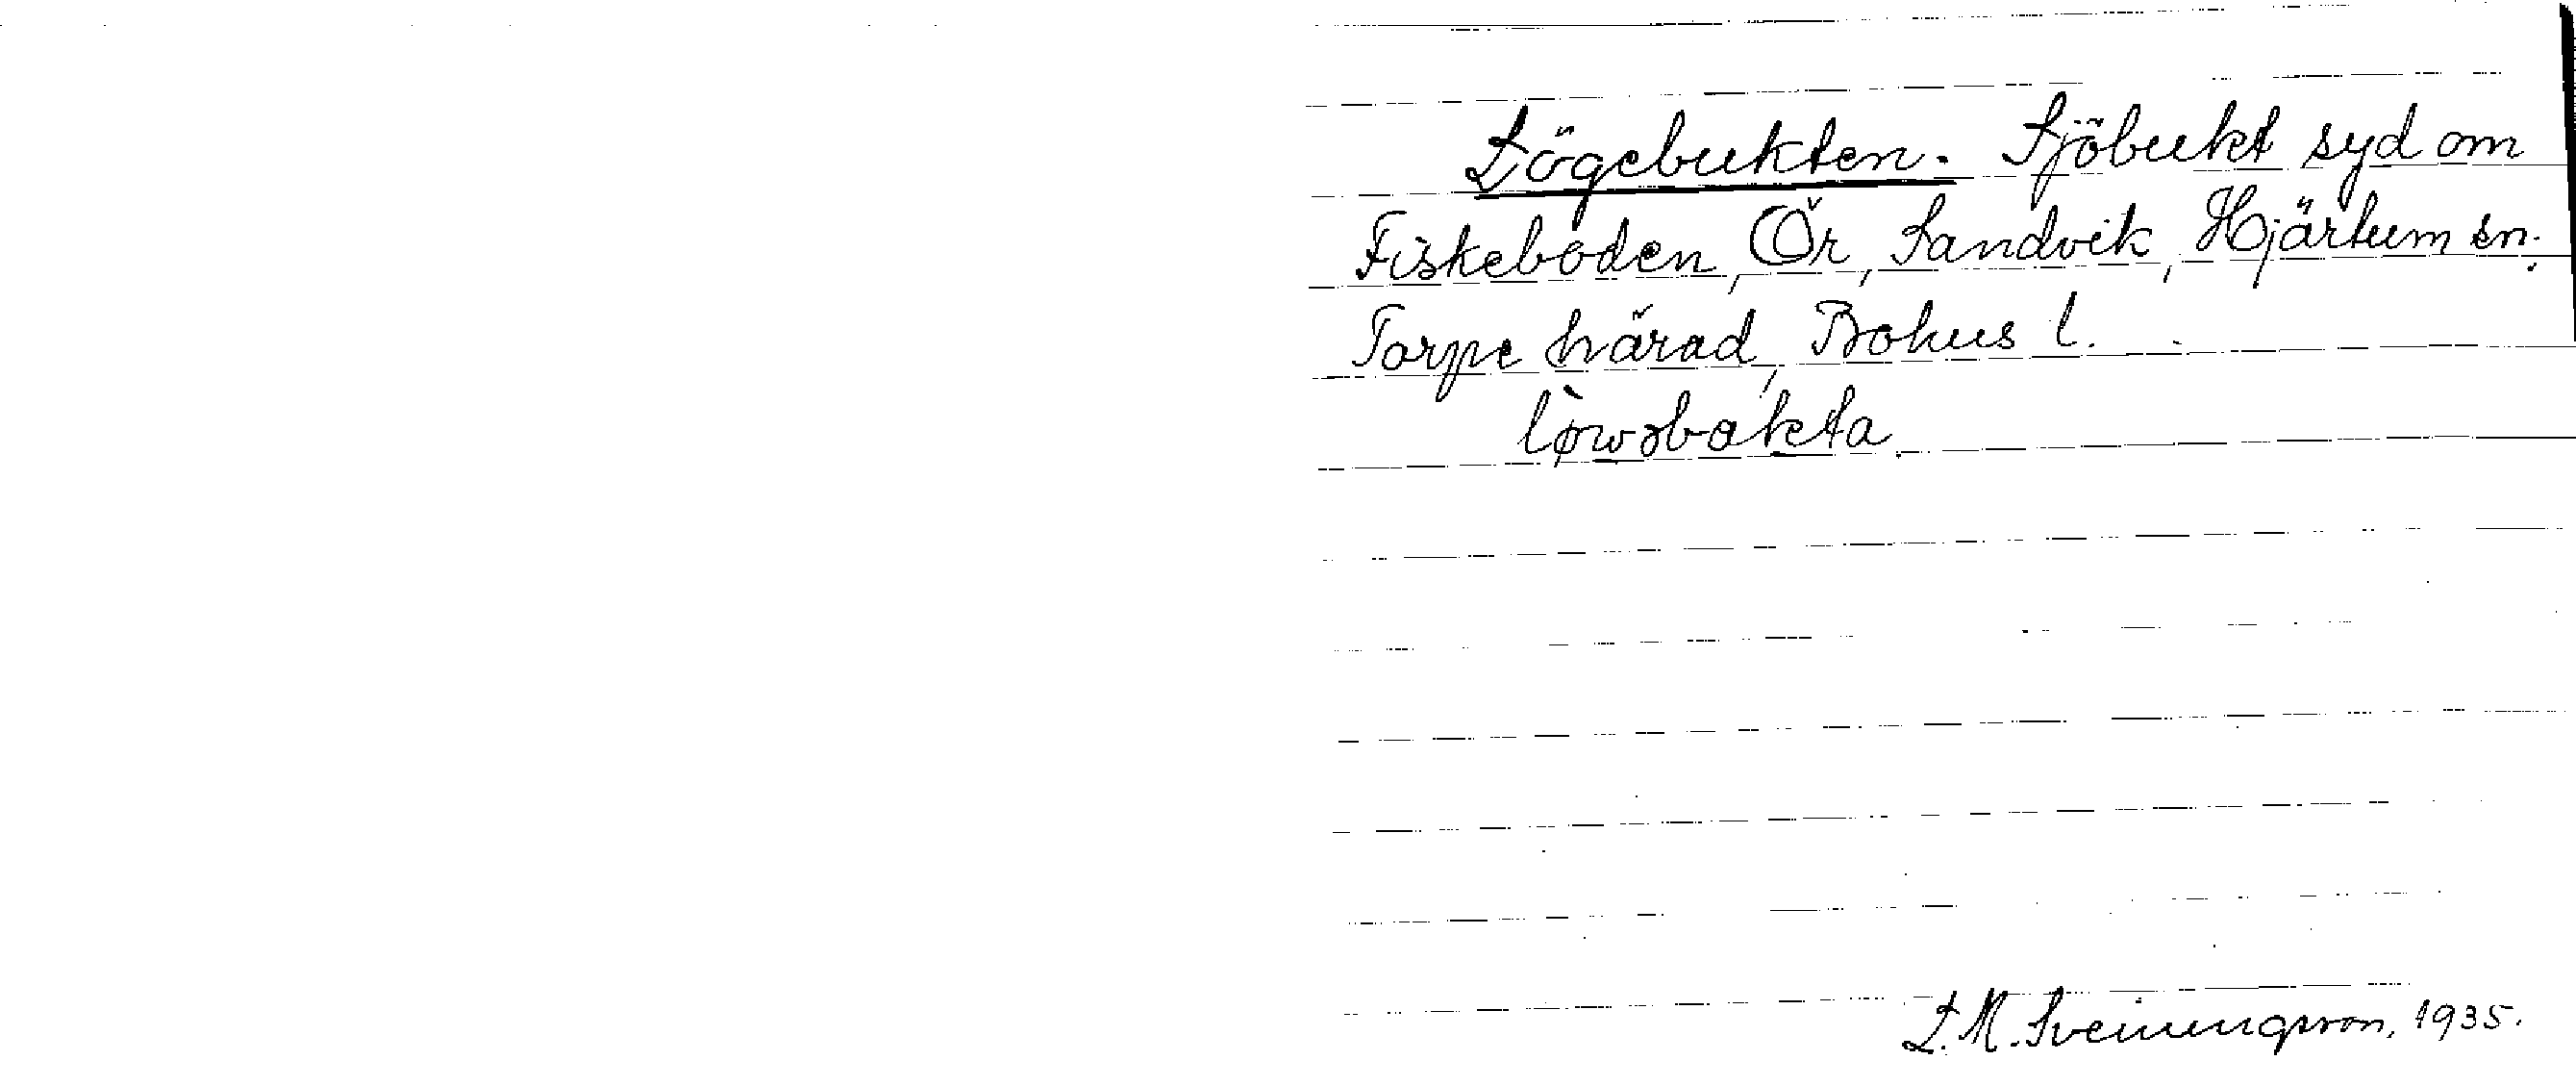 Lögebukten. Sjöbukt syd om
Fiskeboden, Ör, Sandvik, Hjärtum sn.
Torpe härad, Bohus l.
lø̀wəbokta.
L. M. Sveinungsson, 1935.